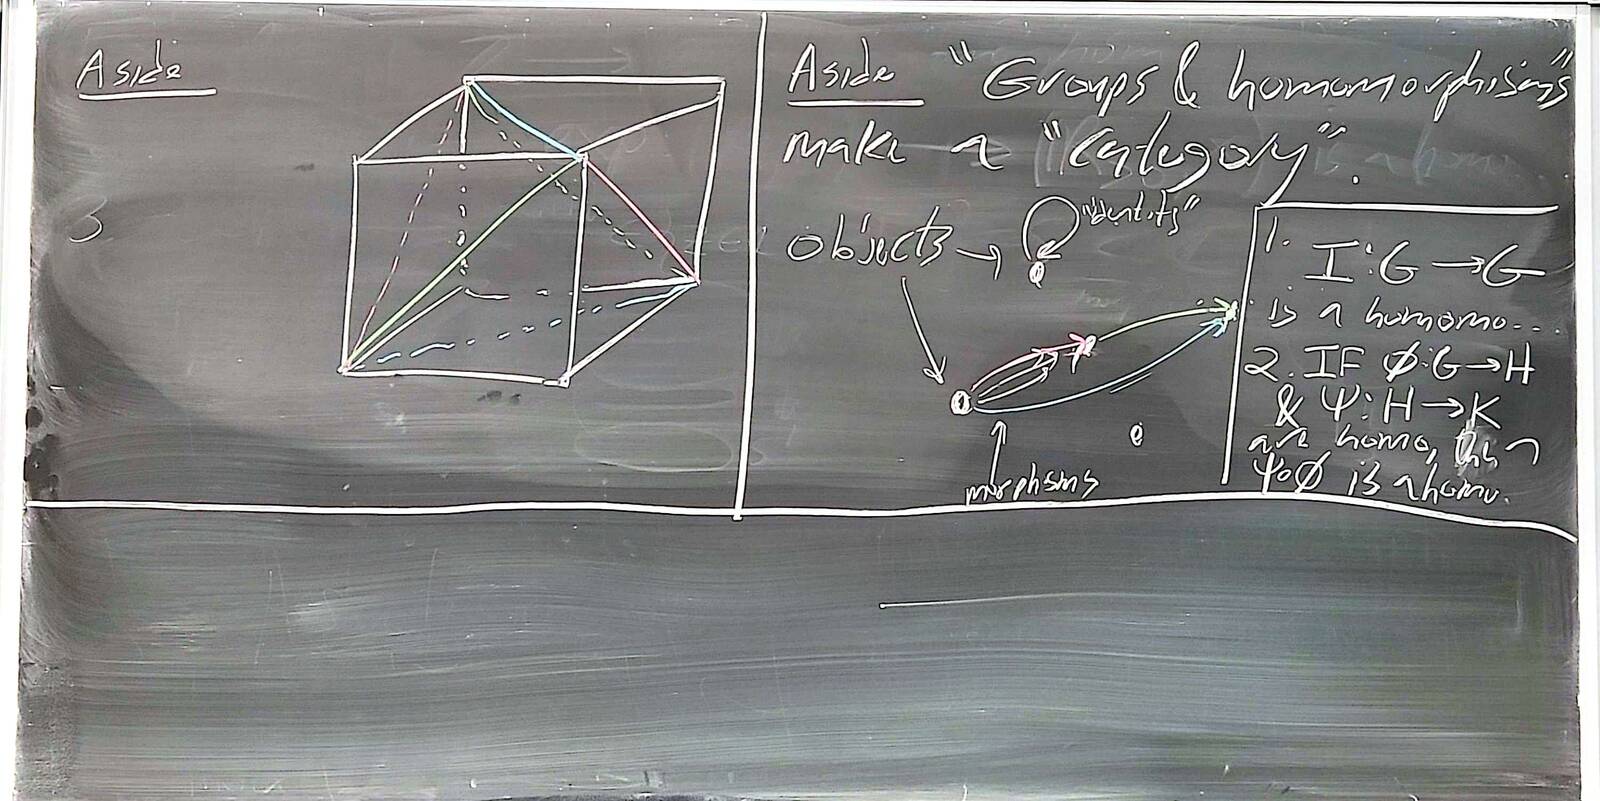 Aside
Aside "Groups & homomorphisms"
make a "Category".
objects → "identity"
morphisms
1. I:G→G
is a homomo...
2. IF φ:G→H
& Ψ:H→K
are homo, then
Ψ∘φ is a homo.